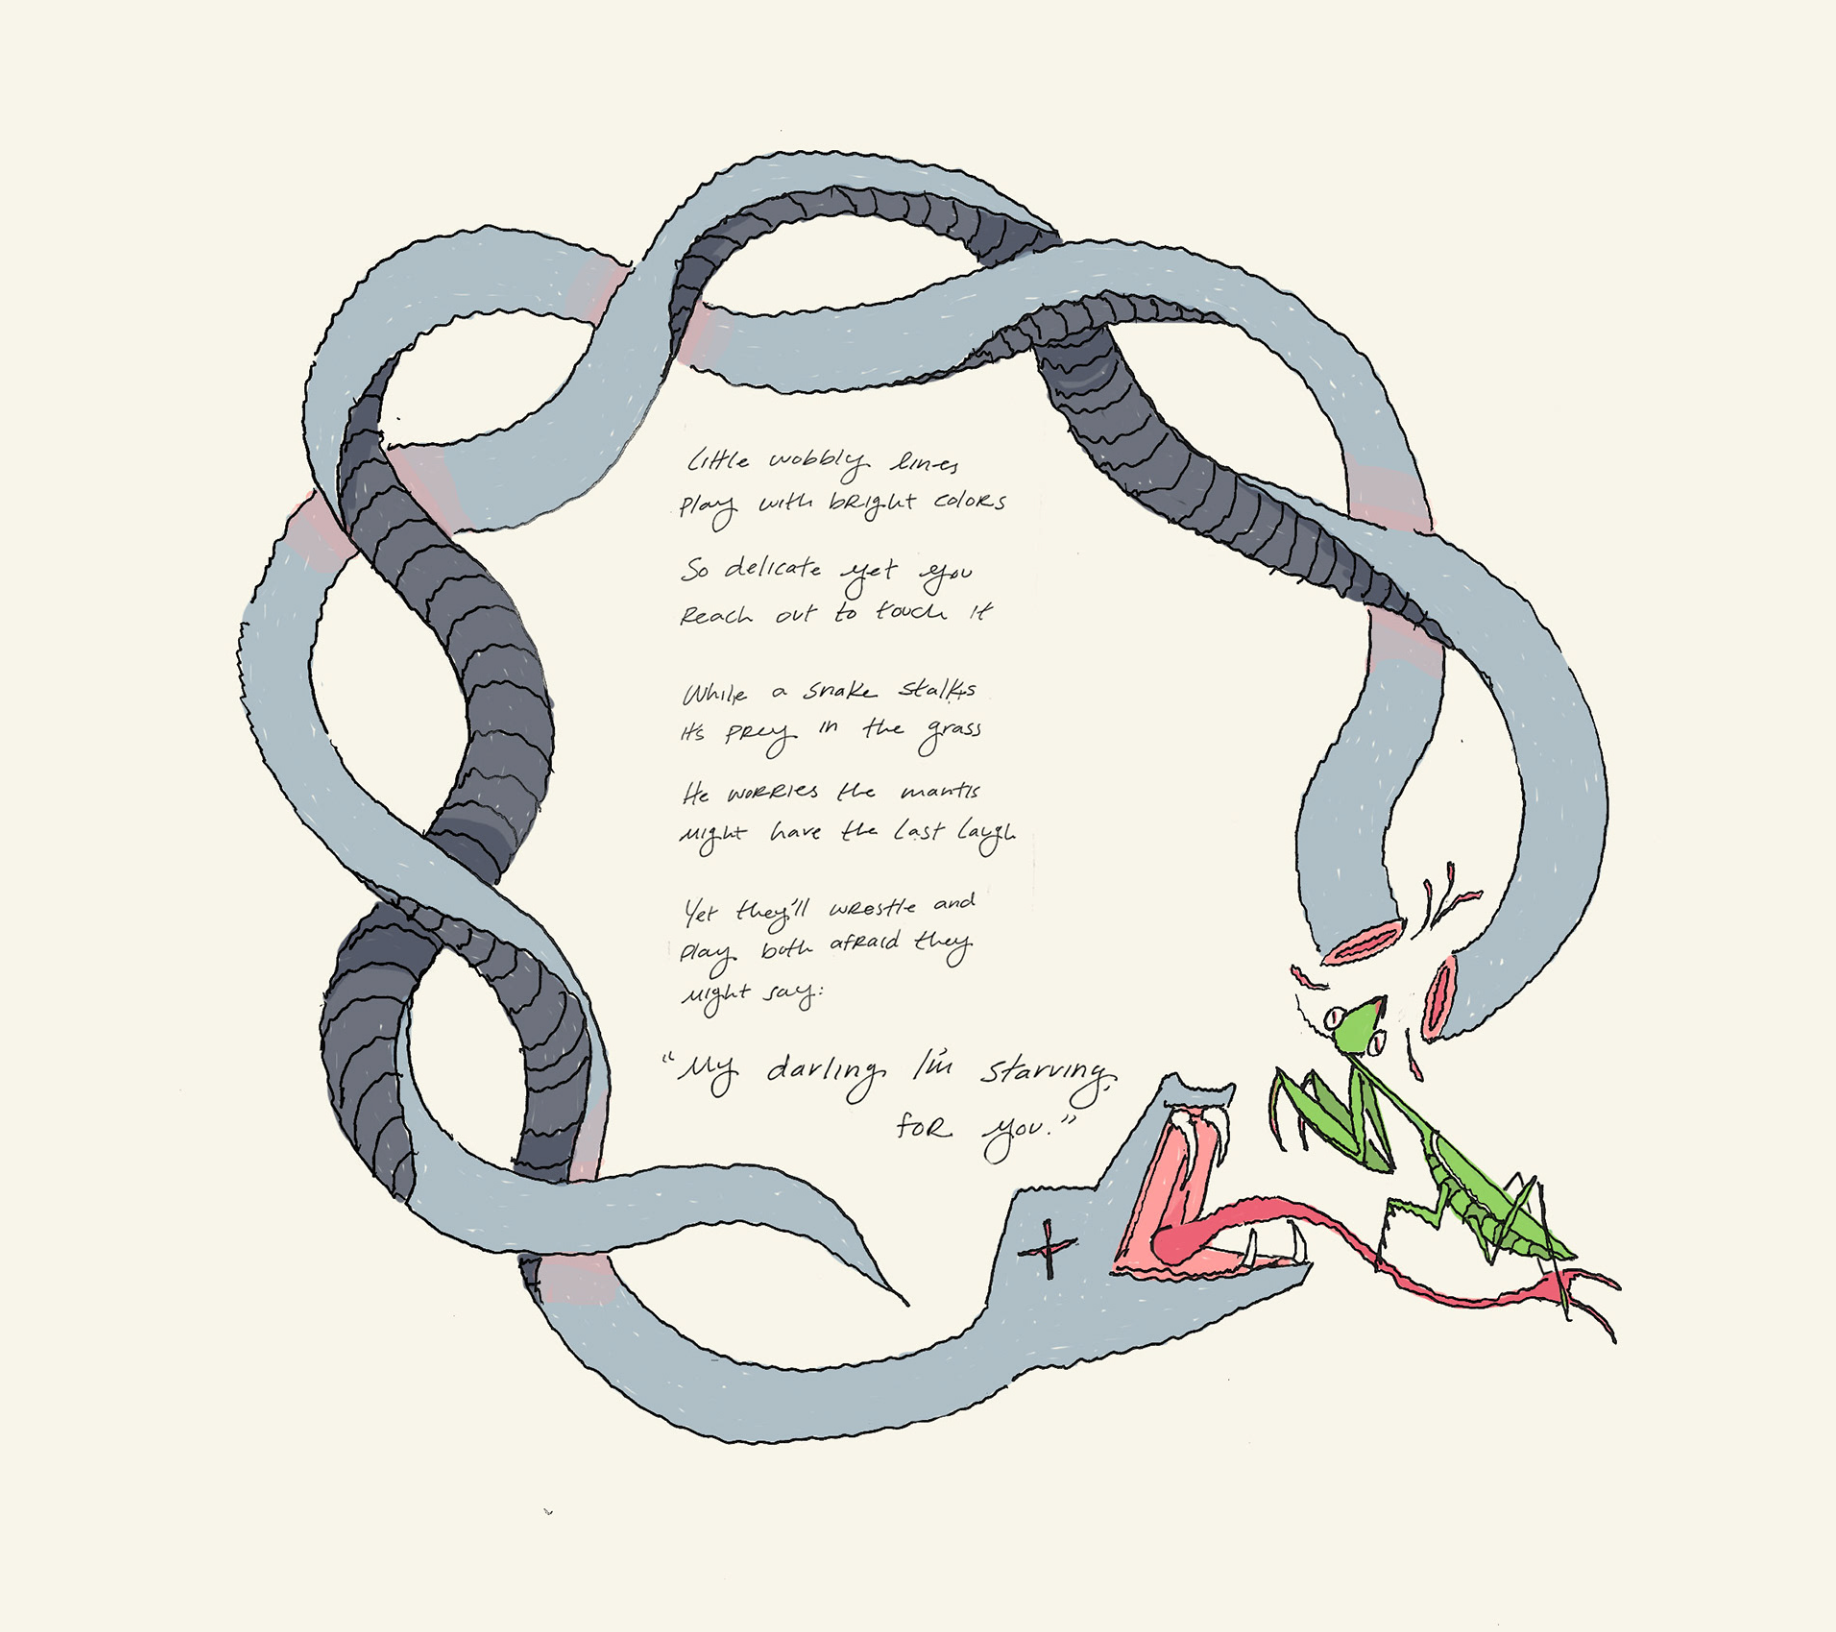 Little wobbly lines
Play with bright colors
So delicate yet you
Reach out to touch it
While a snake stalks
it's prey in the grass
He worries the mantis
might have the last laugh
Yet they'll wrestle and
play both afraid they
might say:
"My darling I'm starving,
for you."